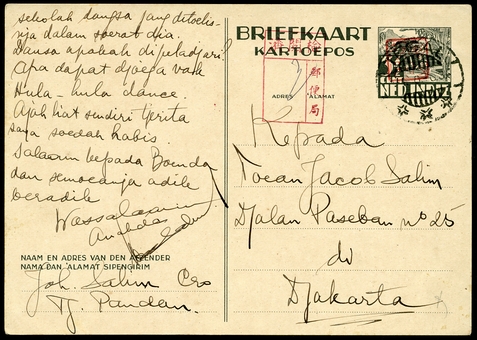 sekolah dangsa jang ditoelis-
nja dalam soerat dia.
Dansa apakah dipeladjari
Apa dapat djoega vak
Hula-hula dance.
Ajah liat sendiri tjerita
saja soedah habis.
Salaam kepada Boenda
dan semoeanja adik
beradik
Wassalaam
Ananda
NAAM EN ADRES VAN DEN AFZENDER
NAMA DAN ALAMAT SIPENGIRIM
Joh. Salim
Tj. Pandan.
BRIEFKAART
KARTOEPOS
ADRES ALAMAT
郵便局
NED. INDIE
Kepada
Toean Jacob Salim
Djalan Paseban no 25
di
Djakarta